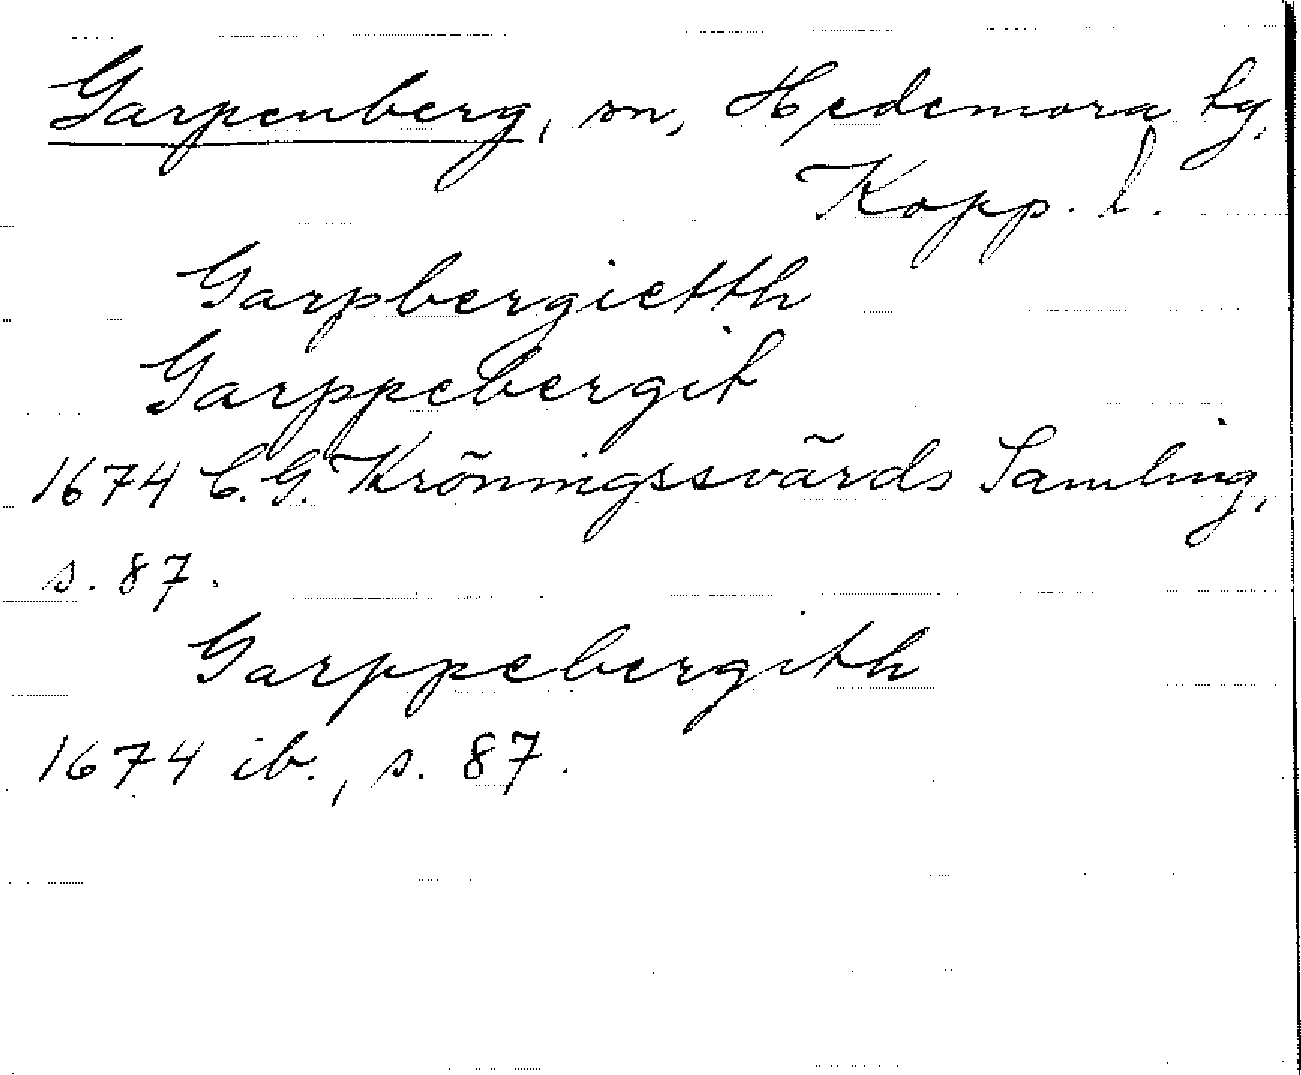 Garpenberg, sn, Hedemora tg,
Kopp. l.
Garpbergietth
Garppebergit
1674 C.G. Kröningssvärds Samling,
s. 87.
Garppebergith
1674 ib., s. 87.